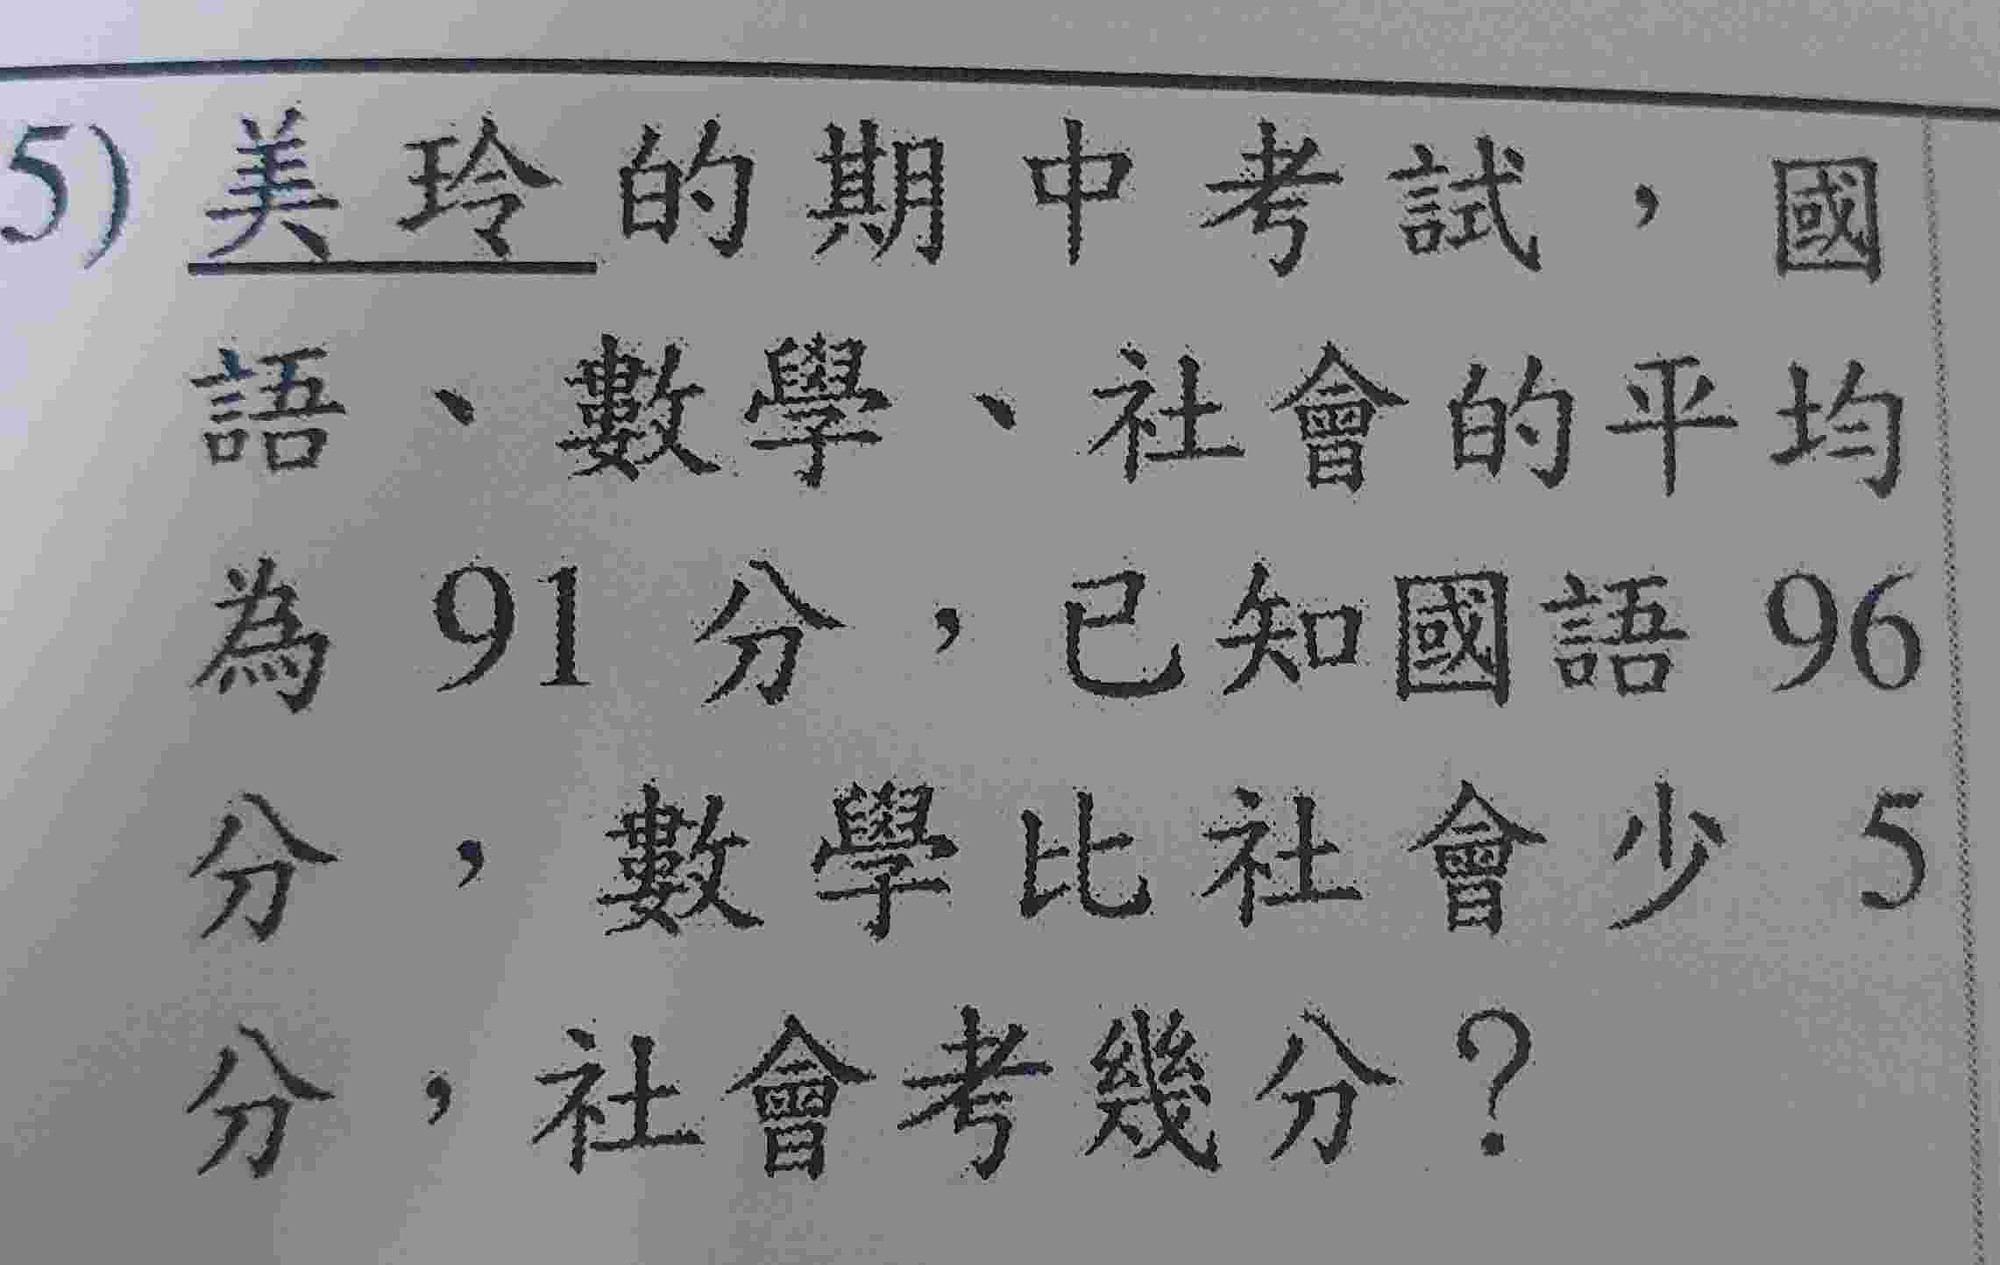 5) 美玲的期中考試，國
語、數學、社會的平均
為 91 分，已知國語 96
分，數學比社會少 5
分，社會考幾分？